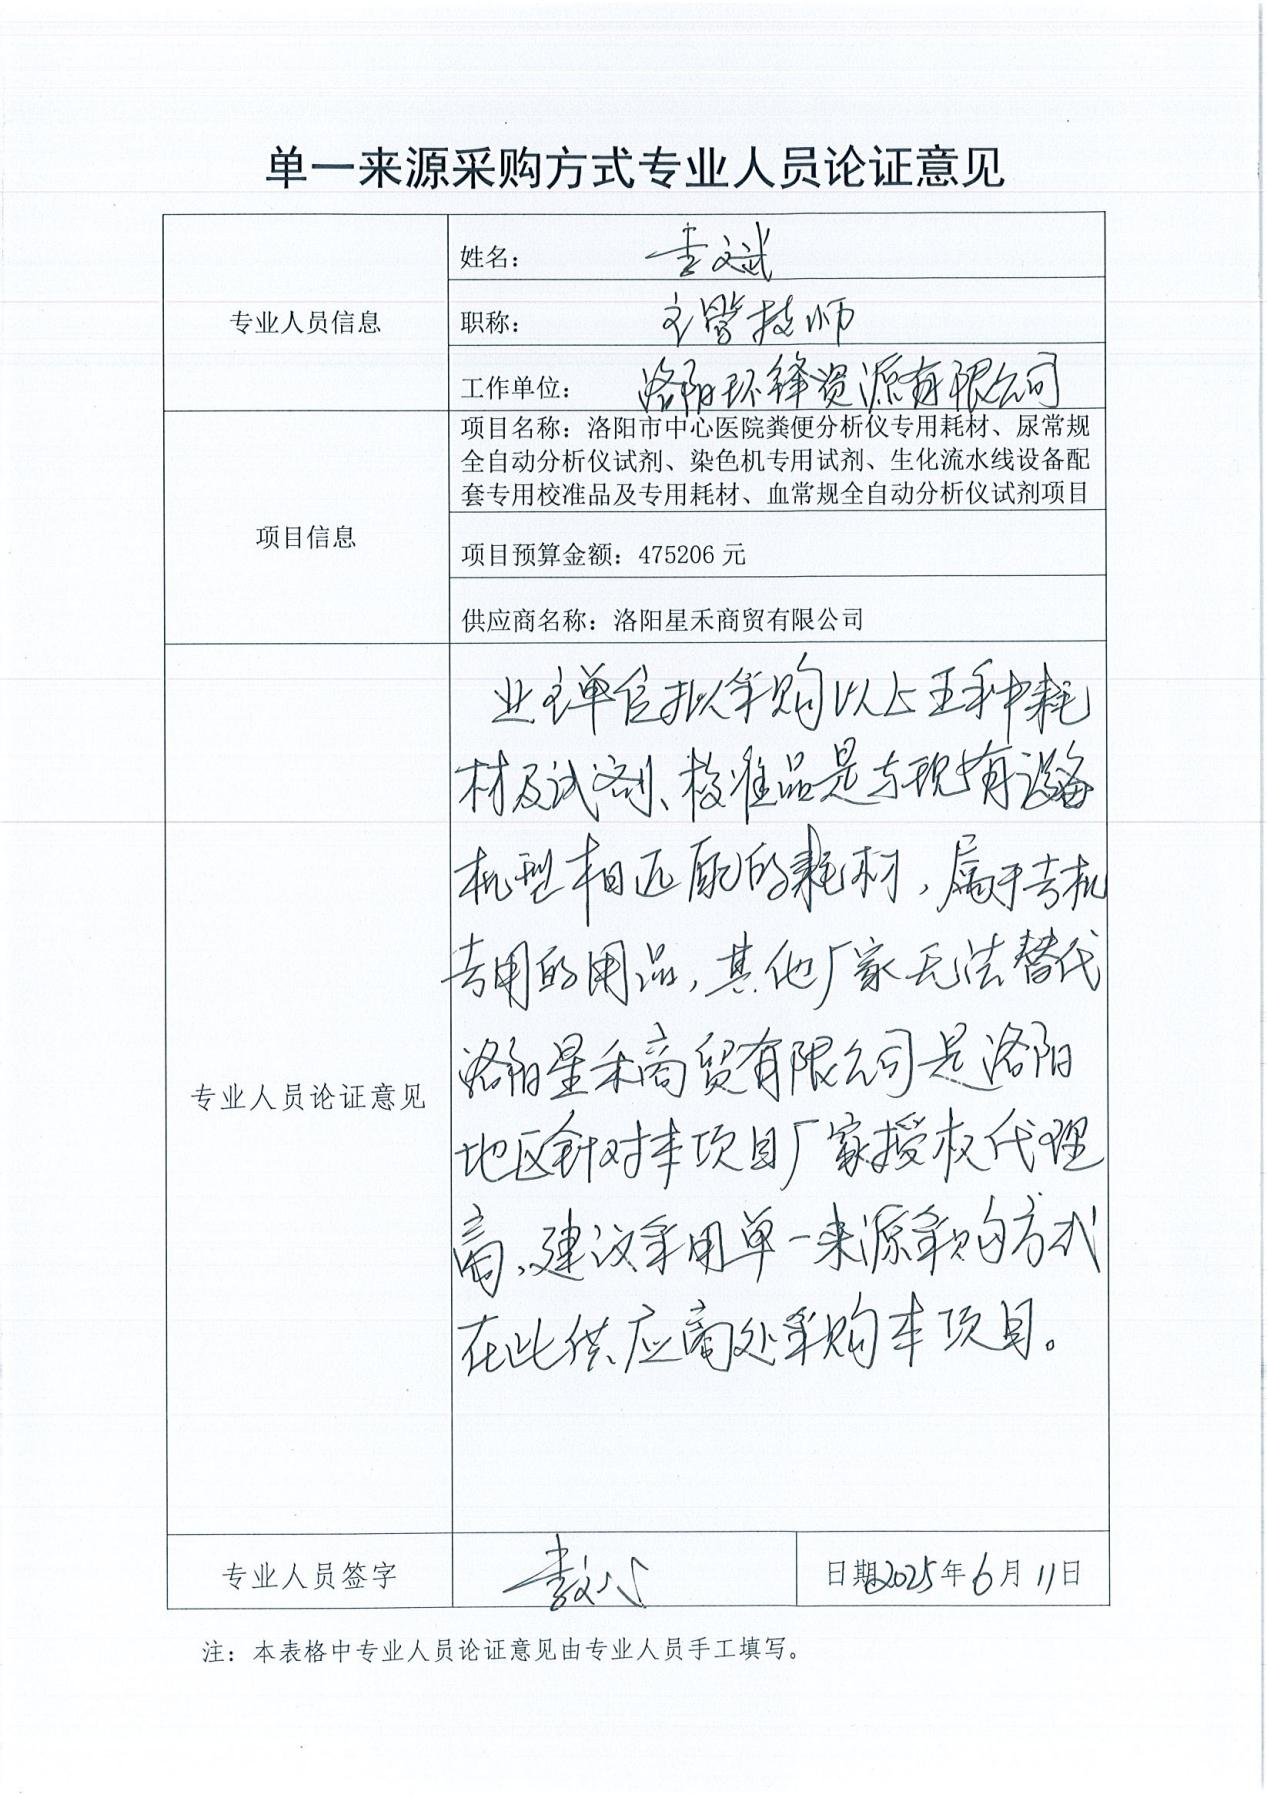 单一来源采购方式专业人员论证意见
专业人员信息
姓名：李文斌
职称：主管技师
工作单位：洛阳环锋资源有限公司
项目信息
项目名称：洛阳市中心医院粪便分析仪专用耗材、尿常规
全自动分析仪试剂、染色机专用试剂、生化流水线设备配
套专用校准品及专用耗材、血常规全自动分析仪试剂项目
项目预算金额：475206 元
供应商名称：洛阳星禾商贸有限公司
专业人员论证意见
业主单位拟采购以上五种耗
材及试剂、校准品是与现有设备
机型相匹配的耗材，属于专机
专用的用品，其他厂家无法替代
洛阳星禾商贸有限公司是洛阳
地区针对本项目厂家授权代理
商，建议采用单一来源采购方式
在此供应商处采购本项目。
专业人员签字
李文斌
日期2025年6月11日
注：本表格中专业人员论证意见由专业人员手工填写。